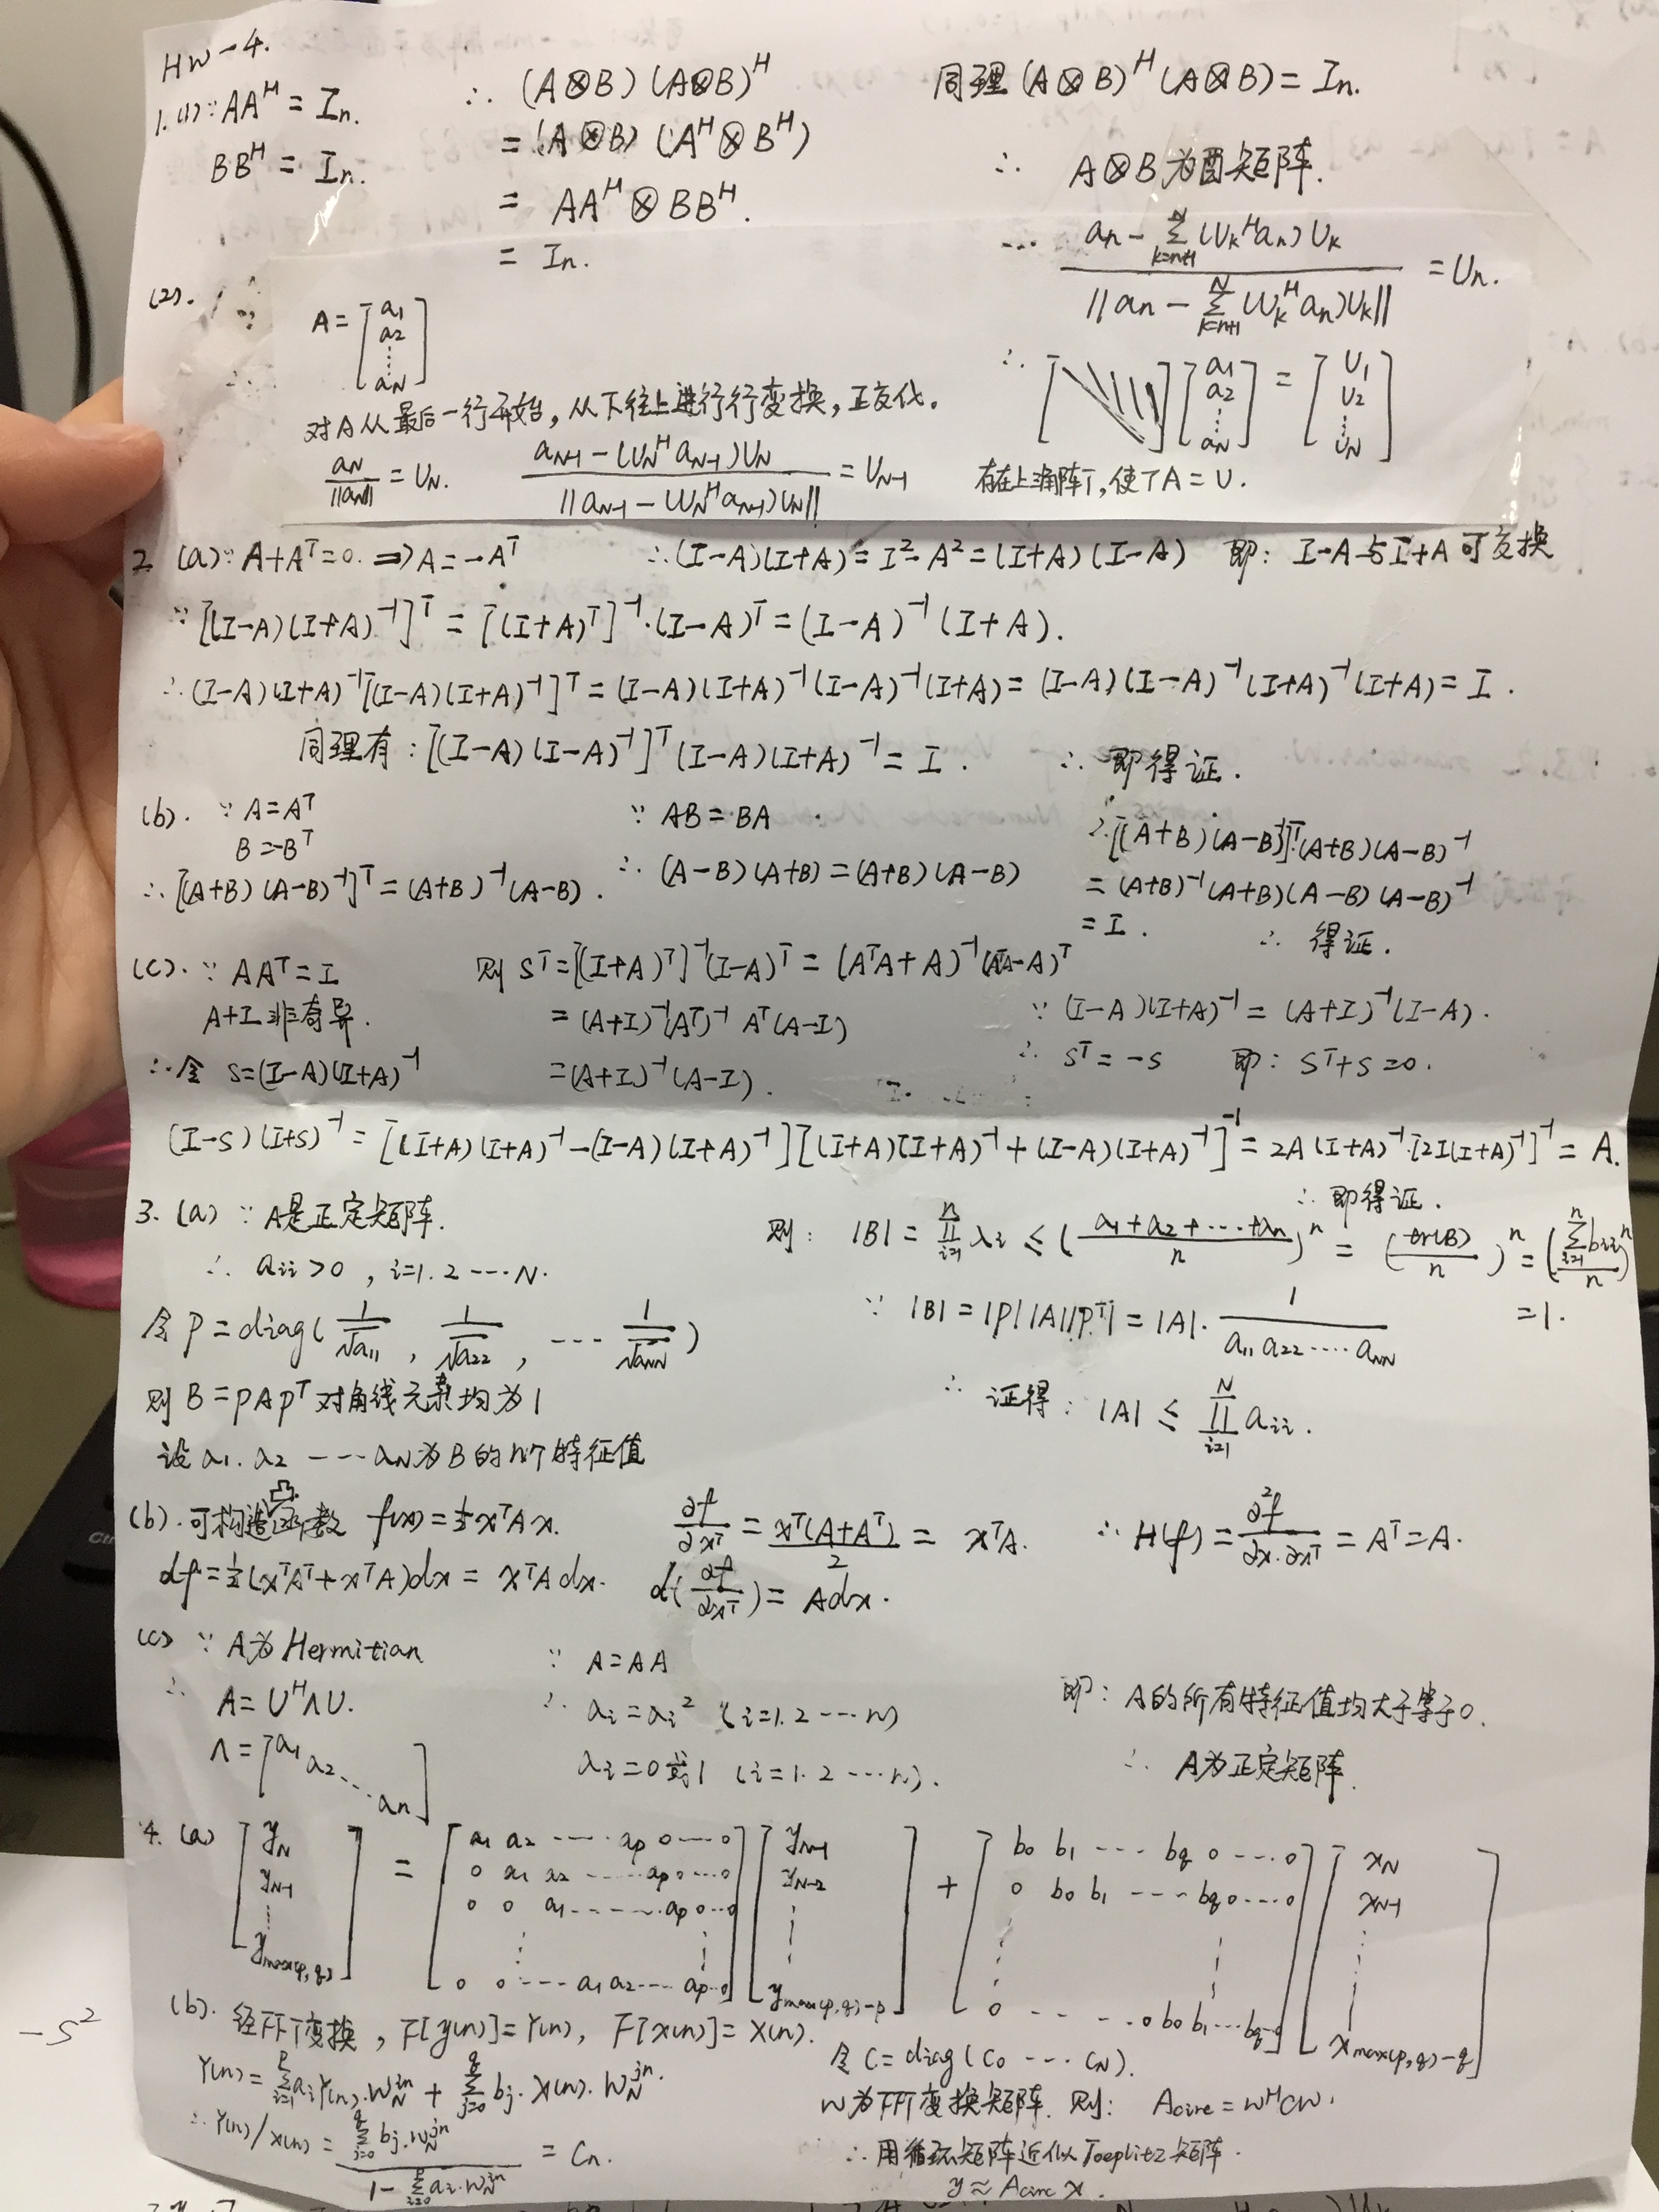 HW-4.
1.(1) ∵ AA^H = In.
BB^H = In.
∴ (A⊗B)(A⊗B)^H
= (A⊗B)(A^H⊗B^H)
= AA^H⊗BB^H.
= In.
同理 (A⊗B)^H(A⊗B) = In.
∴ A⊗B为酉矩阵.
(2).
A = [a1 a2 ⋮ aN]
对A从最后一行开始,从下往上进行行变换,正交化.
aN/||aN|| = UN. (aN-1 - (UN^H aN-1)UN)/||aN-1 - (UN^H aN-1)UN|| = UN-1
... (an - Σ_{k=n+1}^{N}(Uk^H an)Uk)/||an - Σ_{k=n+1}^{N}(Uk^H an)Uk|| = Un.
∴ [ ] [a1 a2 ⋮ aN] = [U1 U2 ⋮ UN]
存在上三角阵T,使TA = U.
2 (a) ∵ A+A^T=0. ⇒ A=-A^T ∴ (I-A)(I+A) = I^2-A^2 = (I+A)(I-A) 即: I-A与I+A可交换
∵ [(I-A)(I+A)^-1]^T = [(I+A)^T]^-1·(I-A)^T = (I-A)^-1(I+A).
∴ (I-A)(I+A)^-1[(I-A)(I+A)^-1]^T = (I-A)(I+A)^-1(I-A)^-1(I+A) = (I-A)(I-A)^-1(I+A)^-1(I+A) = I.
同理有: [(I-A)(I-A)^-1]^T(I-A)(I+A)^-1 = I. ∴ 即得证.
(b). ∵ A=A^T
B=-B^T
∴ [(A+B)(A-B)^-1]^T = (A+B)^-1(A-B).
∵ AB=BA
∴ (A-B)(A+B) = (A+B)(A-B)
∴ [(A+B)(A-B)^-1]^T·(A+B)(A-B)^-1
= (A+B)^-1(A+B)(A-B)(A-B)^-1
= I. ∴ 得证.
(c). ∵ AA^T = I
A+I非奇异.
∴ 令 S=(I-A)(I+A)^-1
则 S^T = [(I+A)^T]^-1(I-A)^T = (A^TA+A)^-1(A^TA-A)^T
= (A+I)^-1(A^T)^-1 A^T(A-I)
= (A+I)^-1(A-I).
∵ (I-A)(I+A)^-1 = (A+I)^-1(I-A).
∴ S^T=-S 即: S^T+S=0.
(I-S)(I+S)^-1 = [(I+A)(I+A)^-1-(I-A)(I+A)^-1][(I+A)(I+A)^-1+(I-A)(I+A)^-1]^-1 = 2A(I+A)^-1·[2I(I+A)^-1]^-1 = A.
∴ 即得证.
3. (a) ∵ A是正定矩阵.
∴ aii>0, i=1.2----N.
令 P=diag(1/√a11, 1/√a22, --- 1/√aNN)
则 B=PAP^T对角线元素均为1
设 λ1. λ2 ---λN为B的n个特征值
则: |B| = ∏_{i=1}^{n} λi ≤ ((λ1+λ2+····+λn)/n)^n = (tr(B)/n)^n = (Σ_{i=1}^{n} bii/n)^n
= 1.
∵ |B| = |P||A||P^T| = |A|· 1/(a11 a22 ····· aNN)
∴ 证得: |A| ≤ ∏_{i=1}^{N} aii.
(b). 可构造凸函数 f(x)=½x^TAx. ∂f/∂x^T = x^T(A+A^T)/2 = x^TA. ∴ H(f) = ∂²f/∂x·∂x^T = A^T=A.
df=½(x^TA^T+x^TA)dx = x^TAdx. d(∂f/∂x^T) = Adx.
(c) ∵ A为Hermitian
∴ A=U^HΛU.
Λ=[λ1 λ2 ⋱ λn]
∵ A=AA
∴ λi=λi^2 (i=1.2---n)
λi=0或1 (i=1.2---n).
即: A的所有特征值均大于等于0.
∴ A为正定矩阵.
4. (a) [yN yN-1 ⋮ ymax(p,q)] = [a1 a2 ---- ap 0---0; 0 a1 a2 ---- ap 0---0; 0 0 a1 ---- ap 0--0; ⋮ ⋮; 0 0 --- a1 a2 --- ap--0] [yN-1 yN-2 ⋮ ymax(p,q)-p] + [b0 b1 --- bq 0---0; 0 b0 b1 ---- bq 0---0; ⋮ ⋮; 0 - -- --0 b0 b1---bq] [xN xN-1 ⋮ xmax(p,q)-q]
(b). 经FFT变换, F[y(n)]=Y(n), F[x(n)]=X(n).
Y(n)=Σ_{i=1}^{p} ai Y(n)·W_N^{in} + Σ_{j=0}^{q} bj·X(n)·W_N^{jn}.
∴ Y(n)/X(n) = (Σ_{j=0}^{q} bj·W_N^{jn})/(1-Σ_{i=0}^{p} ai·W_N^{in}) = Cn.
令 C=diag(C0 --- CN).
W为FFT变换矩阵. 则: Acirc=W^HCW.
∴ 用循环矩阵近似Toeplitz矩阵.
y ≈ Acirc x.
-S^2